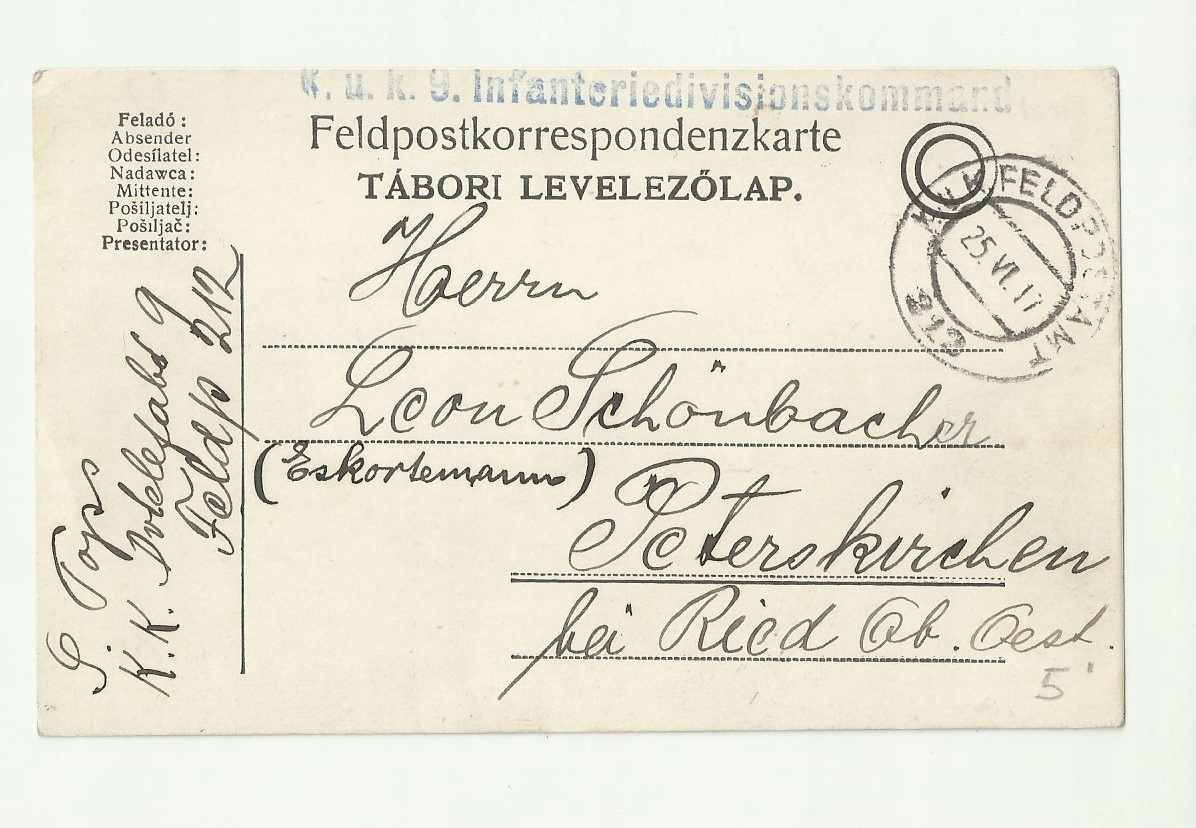 K. u. k. 9. Infanteriedivisionskommand
Feldpostkorrespondenzkarte
TÁBORI LEVELEZŐLAP.
Feladó:
Absender
Odesílatel:
Nadawca:
Mittente:
Pošiljatelj:
Pošiljač:
Presentator:
K.U.K. FELDPOSTAMT
212
25. VI. 17
Herrn
Leon Schönbacher
(Eskortemann)
Peterskirchen
bei Ried Ob. Oest.
5
S. Tops
K.K. 9
Feldp 212